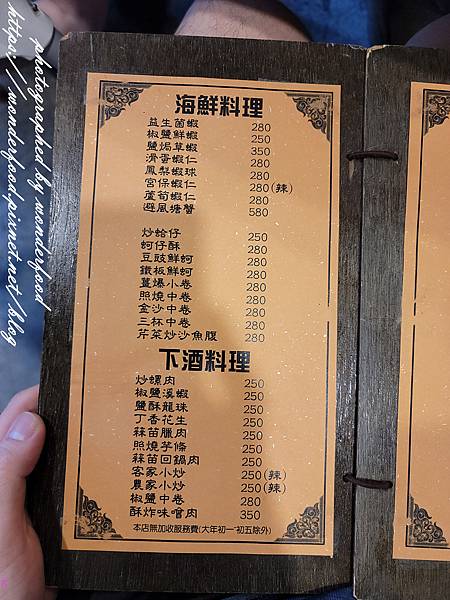 photographed by wonderfood
https://wonderfood.pixnet.net/blog
海鮮料理
益生菌蝦 280
椒鹽鮮蝦 250
鹽焗草蝦 350
滑蛋蝦仁 280
鳳梨蝦球 280
宮保蝦仁 280(辣)
蘆筍蝦仁 280
避風塘蟹 580
炒蛤仔 250
蚵仔酥 280
豆豉鮮蚵 280
鐵板鮮蚵 280
薑爆小卷 280
照燒中卷 280
金沙中卷 280
三杯中卷 280
芹菜炒沙魚腹 280
下酒料理
炒螺肉 250
椒鹽溪蝦 250
鹽酥龍珠 250
丁香花生 250
蒜苗臘肉 250
照燒芋條 250
蒜苗回鍋肉 250
客家小炒 250(辣)
農家小炒 250(辣)
椒鹽中卷 280
酥炸味噌肉 350
本店無加收服務費(大年初一~初五除外)